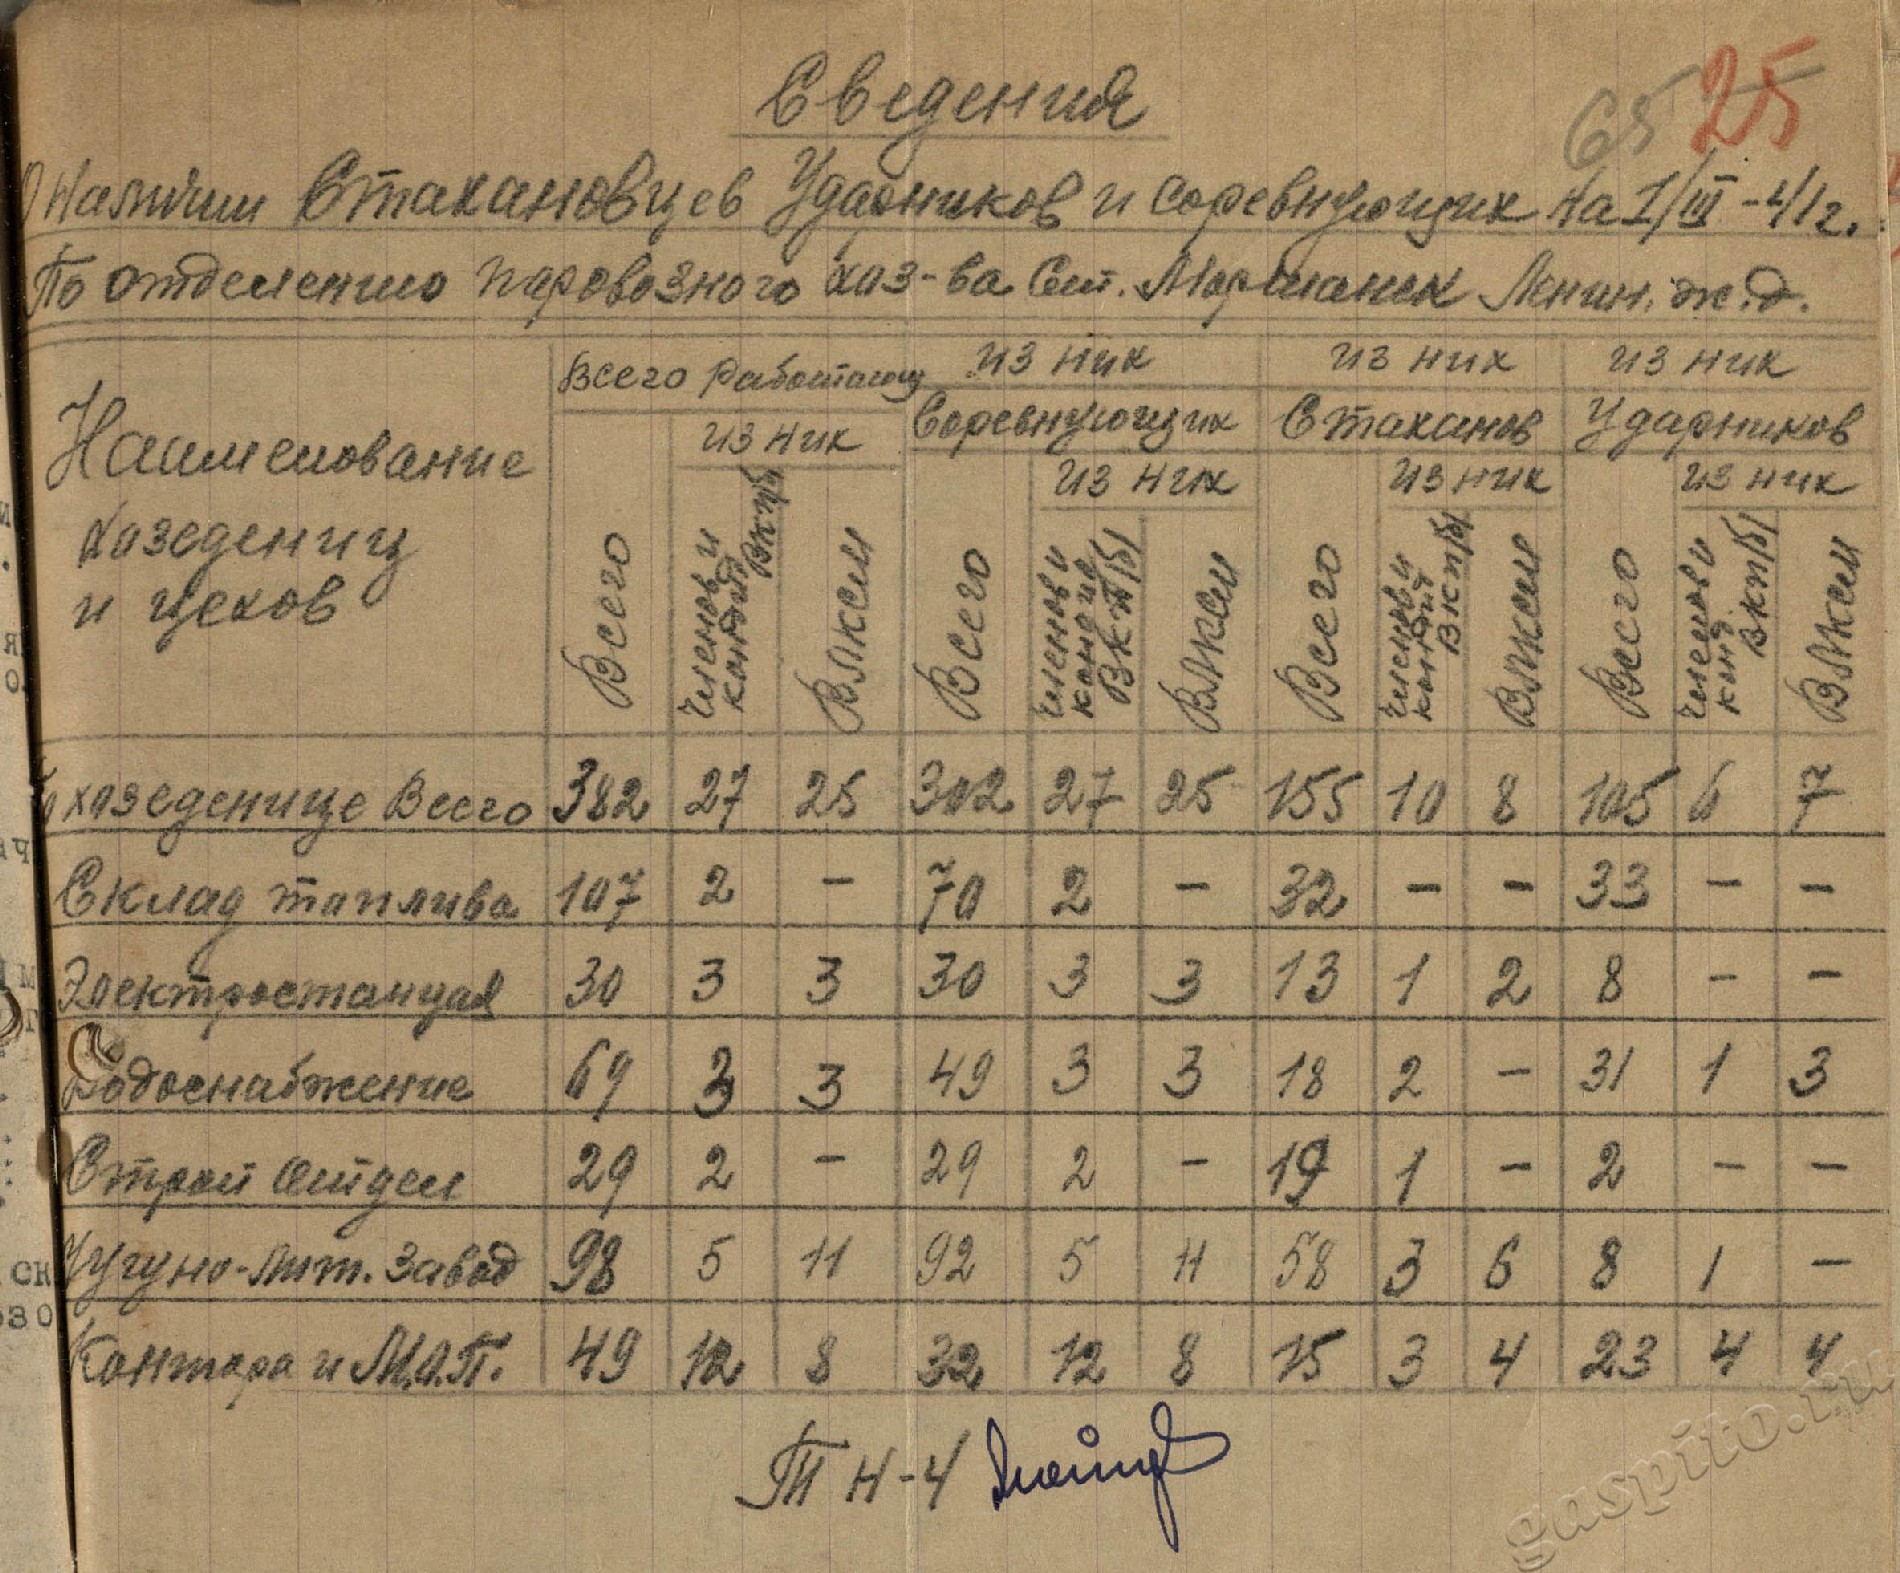 Сведения
65 25
О Наличии Стахановцев Ударников и соревнующих на I/III-41г.
По отделению паровозного хоз-ва Ст. Моршанск Ленин. ж.д.
Наименование хозедениц и цехов
Всего Работающ
из них
из них
из них
из них
Соревнующих
Стаханов
Ударников
из них
из них
из них
Всего
Членов и кандид ВКП/б/
ВЛКСМ
Всего
Членов и кандид ВКП/б/
ВЛКСМ
Всего
Членов и кандит ВКП/б/
ВЛКСМ
Всего
Членов и канд ВКП/б/
ВЛКСМ
хозеденице Всего 382 27 25 302 27 25 155 10 8 105 6 7
Склад топлива 107 2 – 70 2 – 32 – – 33 – –
Электростанция 30 3 3 30 3 3 13 1 2 8 – –
Водоснабжение 69 3 3 49 3 3 18 2 – 31 1 3
Строй отдел 29 2 – 29 2 – 19 1 – 2 – –
Чугуно-лит. Завод 98 5 11 92 5 11 58 3 6 8 1 –
Контора и М.О.П. 49 12 8 32 12 8 15 3 4 23 4 4
ТН-4
gaspito.ru